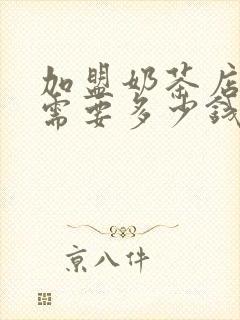 加盟奶茶店
需要多少钱
京八件